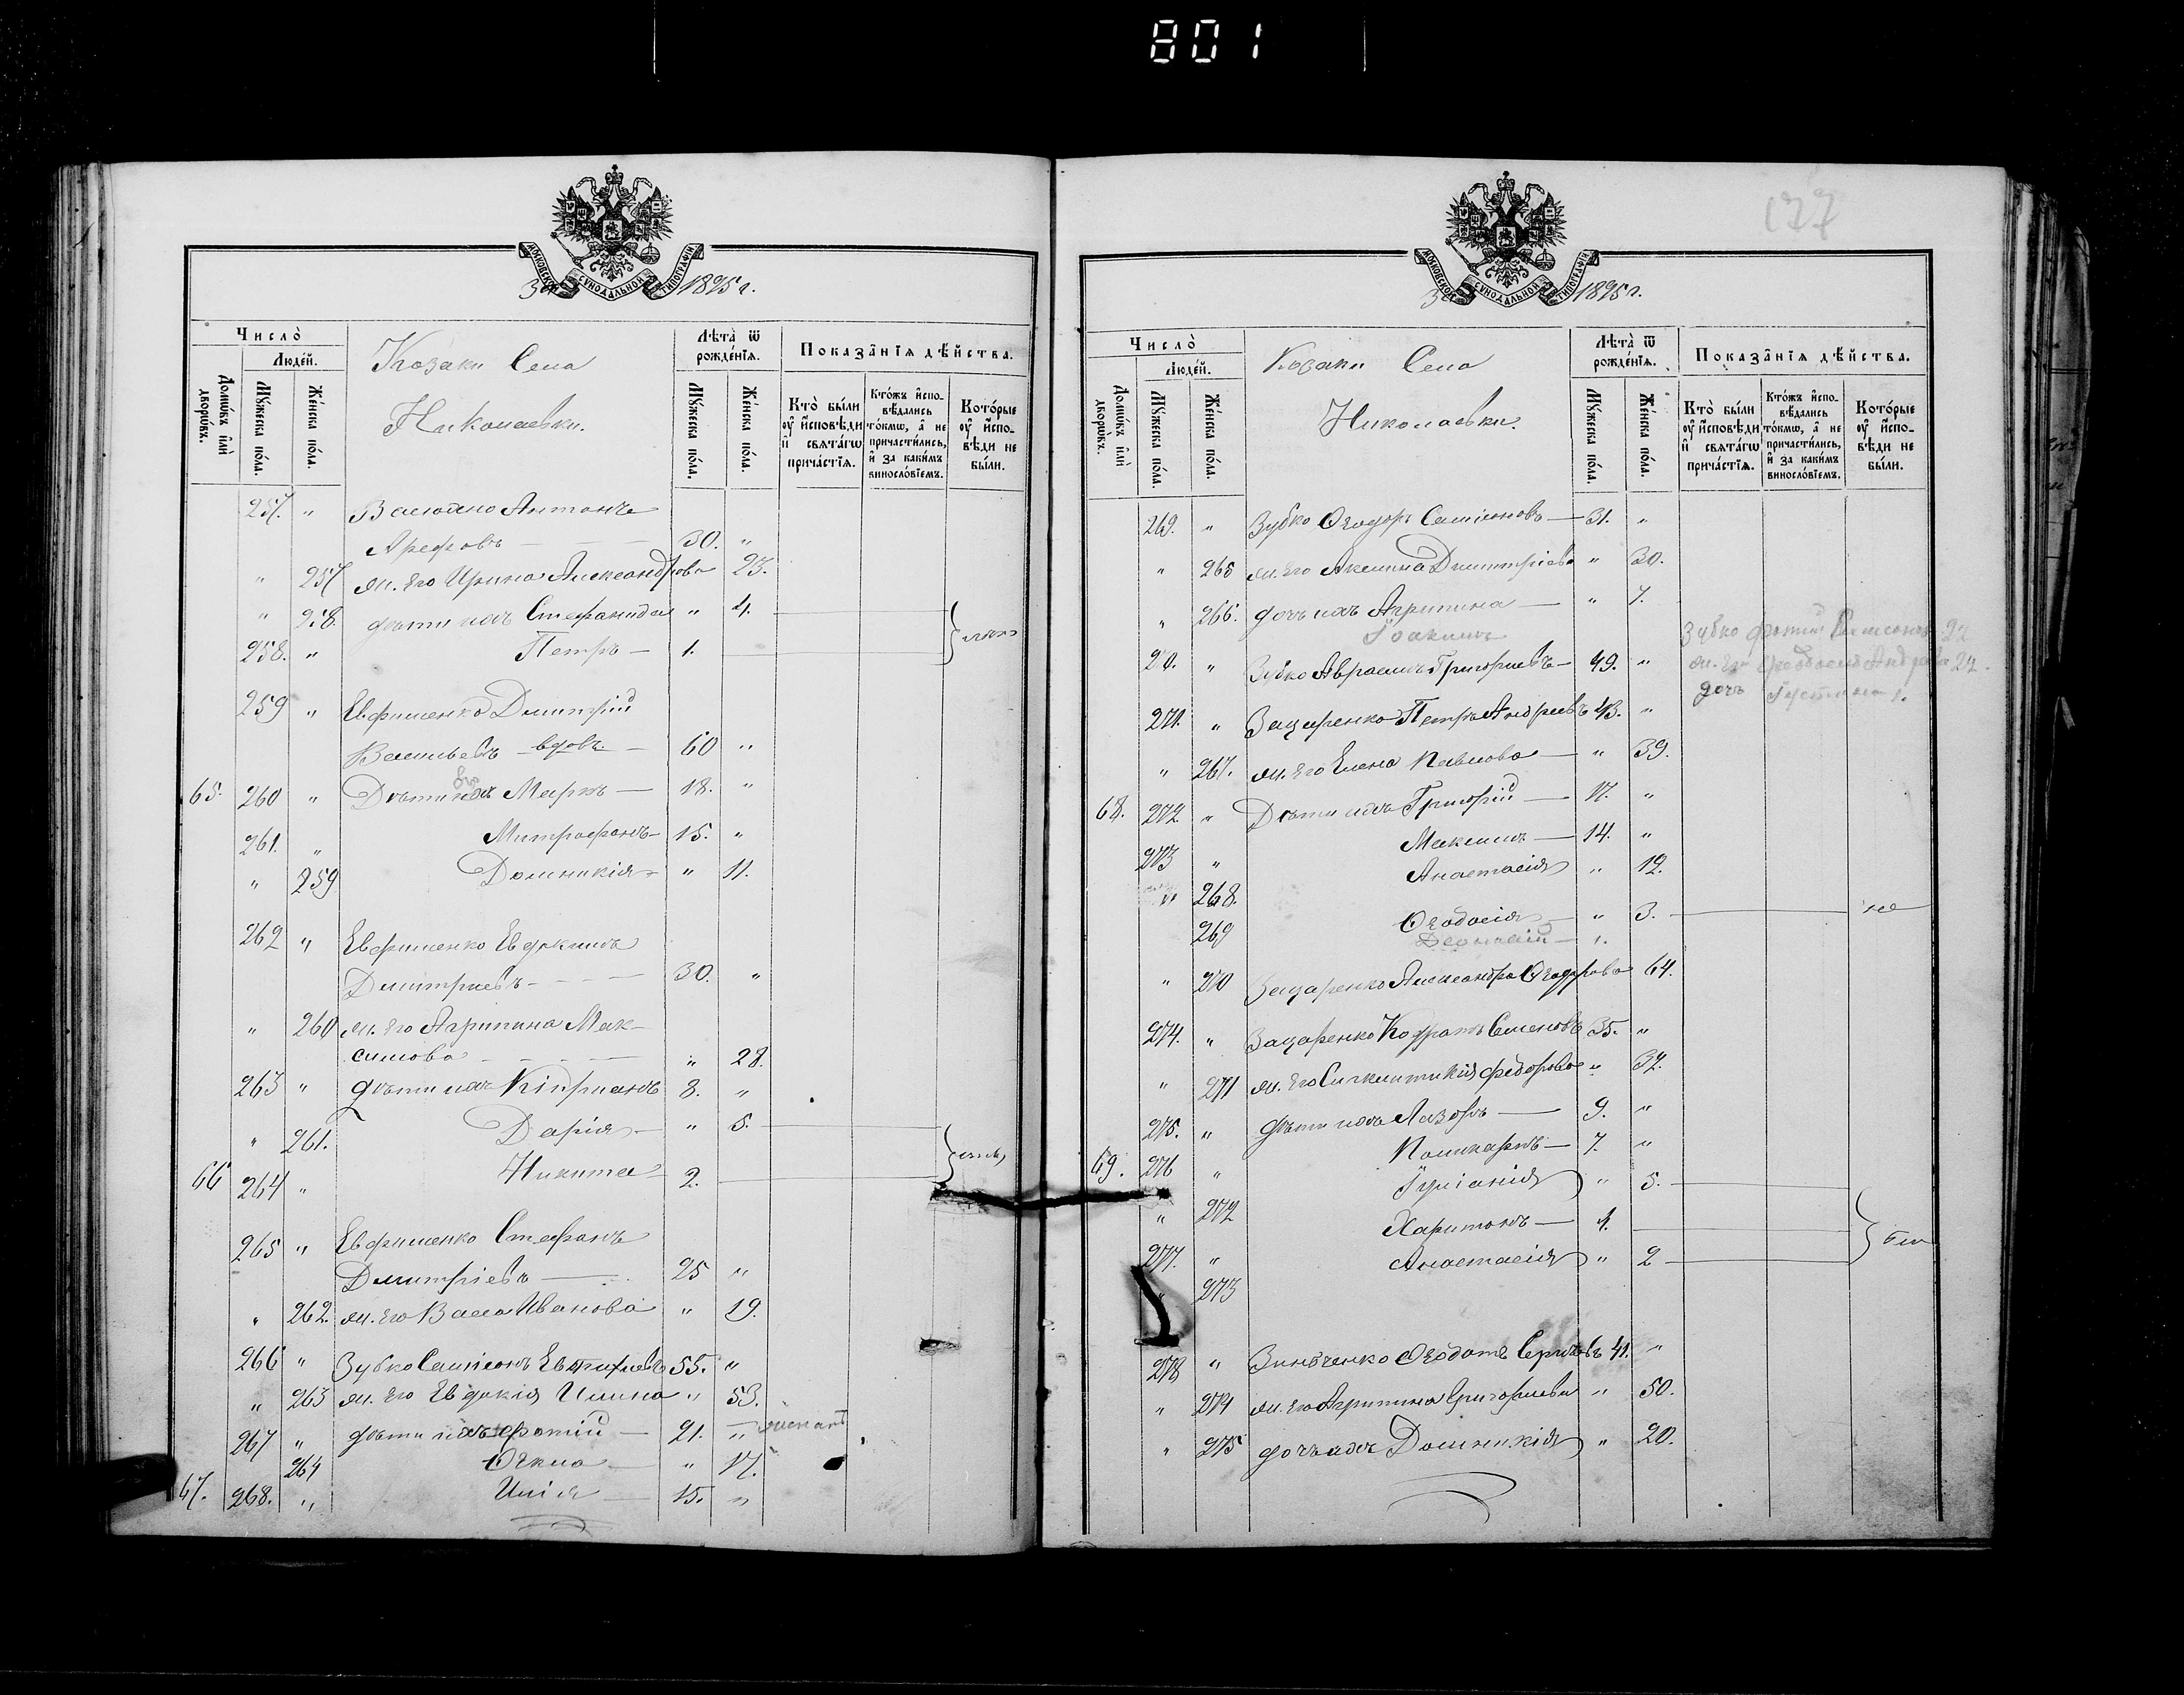 801
МОСКОВСКОЙ СѴНОДАЛЬНОЙ ТИПОГРАФІИ
За 1895 г.
Число̀
Людéй.
Домѡ́въ и҆лѝ дворѡ́въ.
Мꙋ́жеска по́ла.
Же́нска по́ла.
Козаки Села
Николаевки.
Лѣта̀ ѿ рожде́нїѧ.
Мꙋ́жеска по́ла.
Же́нска по́ла.
Показа̑нїѧ дѣ́йства.
Кто̀ бы́ли ᲂу҆ и҆сповѣди и҆ свѧта́гѡ прича́стїѧ.
Кто́жъ и҆спо- вѣ́дались то́кмѡ, а҆ не причасти́лись, и҆ за каки́мъ винослóвїемъ.
Кото́рые ᲂу҆ и҆спо- вѣди не бы́ли.
257. " Васюйно Антонъ
Арефовъ — 30. "
" 257 ж. его Ирина Александрова 23.
" 258. дѣти ихъ Стефанида " 4.
258. " Петръ — 1.
259 " Евфименко Димитрій
Васильевъ вдовъ — 60 "
65. 260 " Дѣти его Маркъ — 18. "
261. " Митрофанъ — 15. "
" 259 Домникія — " 11.
262 " Евфименко Евдокимъ
Димитріевъ — 30. "
" 260 ж. его Агрипина Мак-
симова — " 28.
263 " дѣти ихъ Кипріанъ 8. "
" 261. Дарія — " 5.
66 264 " Никита 2.
265 " Евфименко Стефанъ
Димитріевъ — 25 "
" 262. ж. его Васса Иванова " 19.
266 " Зубко Сампсонъ 55. "
" 263 ж. его Евдокія Ильина " 53.
267 " дѣти ихъ Фотій — 21. " женатъ
264 Ѳекла — " 17.
67. 268. " Илія — 15. "
177
МОСКОВСКОЙ СѴНОДАЛЬНОЙ ТИПОГРАФІИ
За 1895 г.
Число̀
Людéй.
Домѡ́въ и҆лѝ дворѡ́въ.
Мꙋ́жеска по́ла.
Же́нска по́ла.
Козаки Села
Николаевки.
Лѣта̀ ѿ рожде́нїѧ.
Мꙋ́жеска по́ла.
Же́нска по́ла.
Показа̑нїѧ дѣ́йства.
Кто̀ бы́ли ᲂу҆ и҆сповѣди и҆ свѧта́гѡ прича́стїѧ.
Кто́жъ и҆спо- вѣ́дались то́кмѡ, а҆ не причасти́лись, и҆ за каки́мъ винослóвїемъ.
Кото́рые ᲂу҆ и҆спо- вѣди не бы́ли.
269. " Зубко Ѳеодоръ Сампсоновъ — 31. "
" 265 ж. его Акилина Димитріева " 30.
" 266. дочь ихъ Агрипина — " 7.
Іоакимъ
Зубко Фотій Сампсоновъ 22
270. " Зубко Авраамъ Григоріевъ — 49. "
ж. его Ѳеодосія Андреева 22.
дочь Іустина 1.
271. " Зацаренко Петръ Андреевъ 43. "
" 267. ж. его Елена Павлова — " 39.
68. 272 " Дѣти ихъ Григорій — 17. "
273 " Максимъ — 14. "
" 268. Анастасія " 12.
269 Ѳеодосія — " 3.
" 270 Зацаренко Александра Ѳеодорова 64.
274. " Зацаренко Кодратъ Семеновъ 35. "
" 271 ж. его Синклитикія Федорова " 32.
275. " дѣти ихъ Лазарь — 9. "
69. 276 " Поликарпъ — 7. "
" 272 Іуліанія " 5.
277. " Харитонъ — 4.
" 273 Анастасія " 2
278 " Зинченко Ѳеодотъ 41. "
" 274 ж. его Агрипина Григоріева " 50.
" 275 дочь ихъ Домникія " 20.